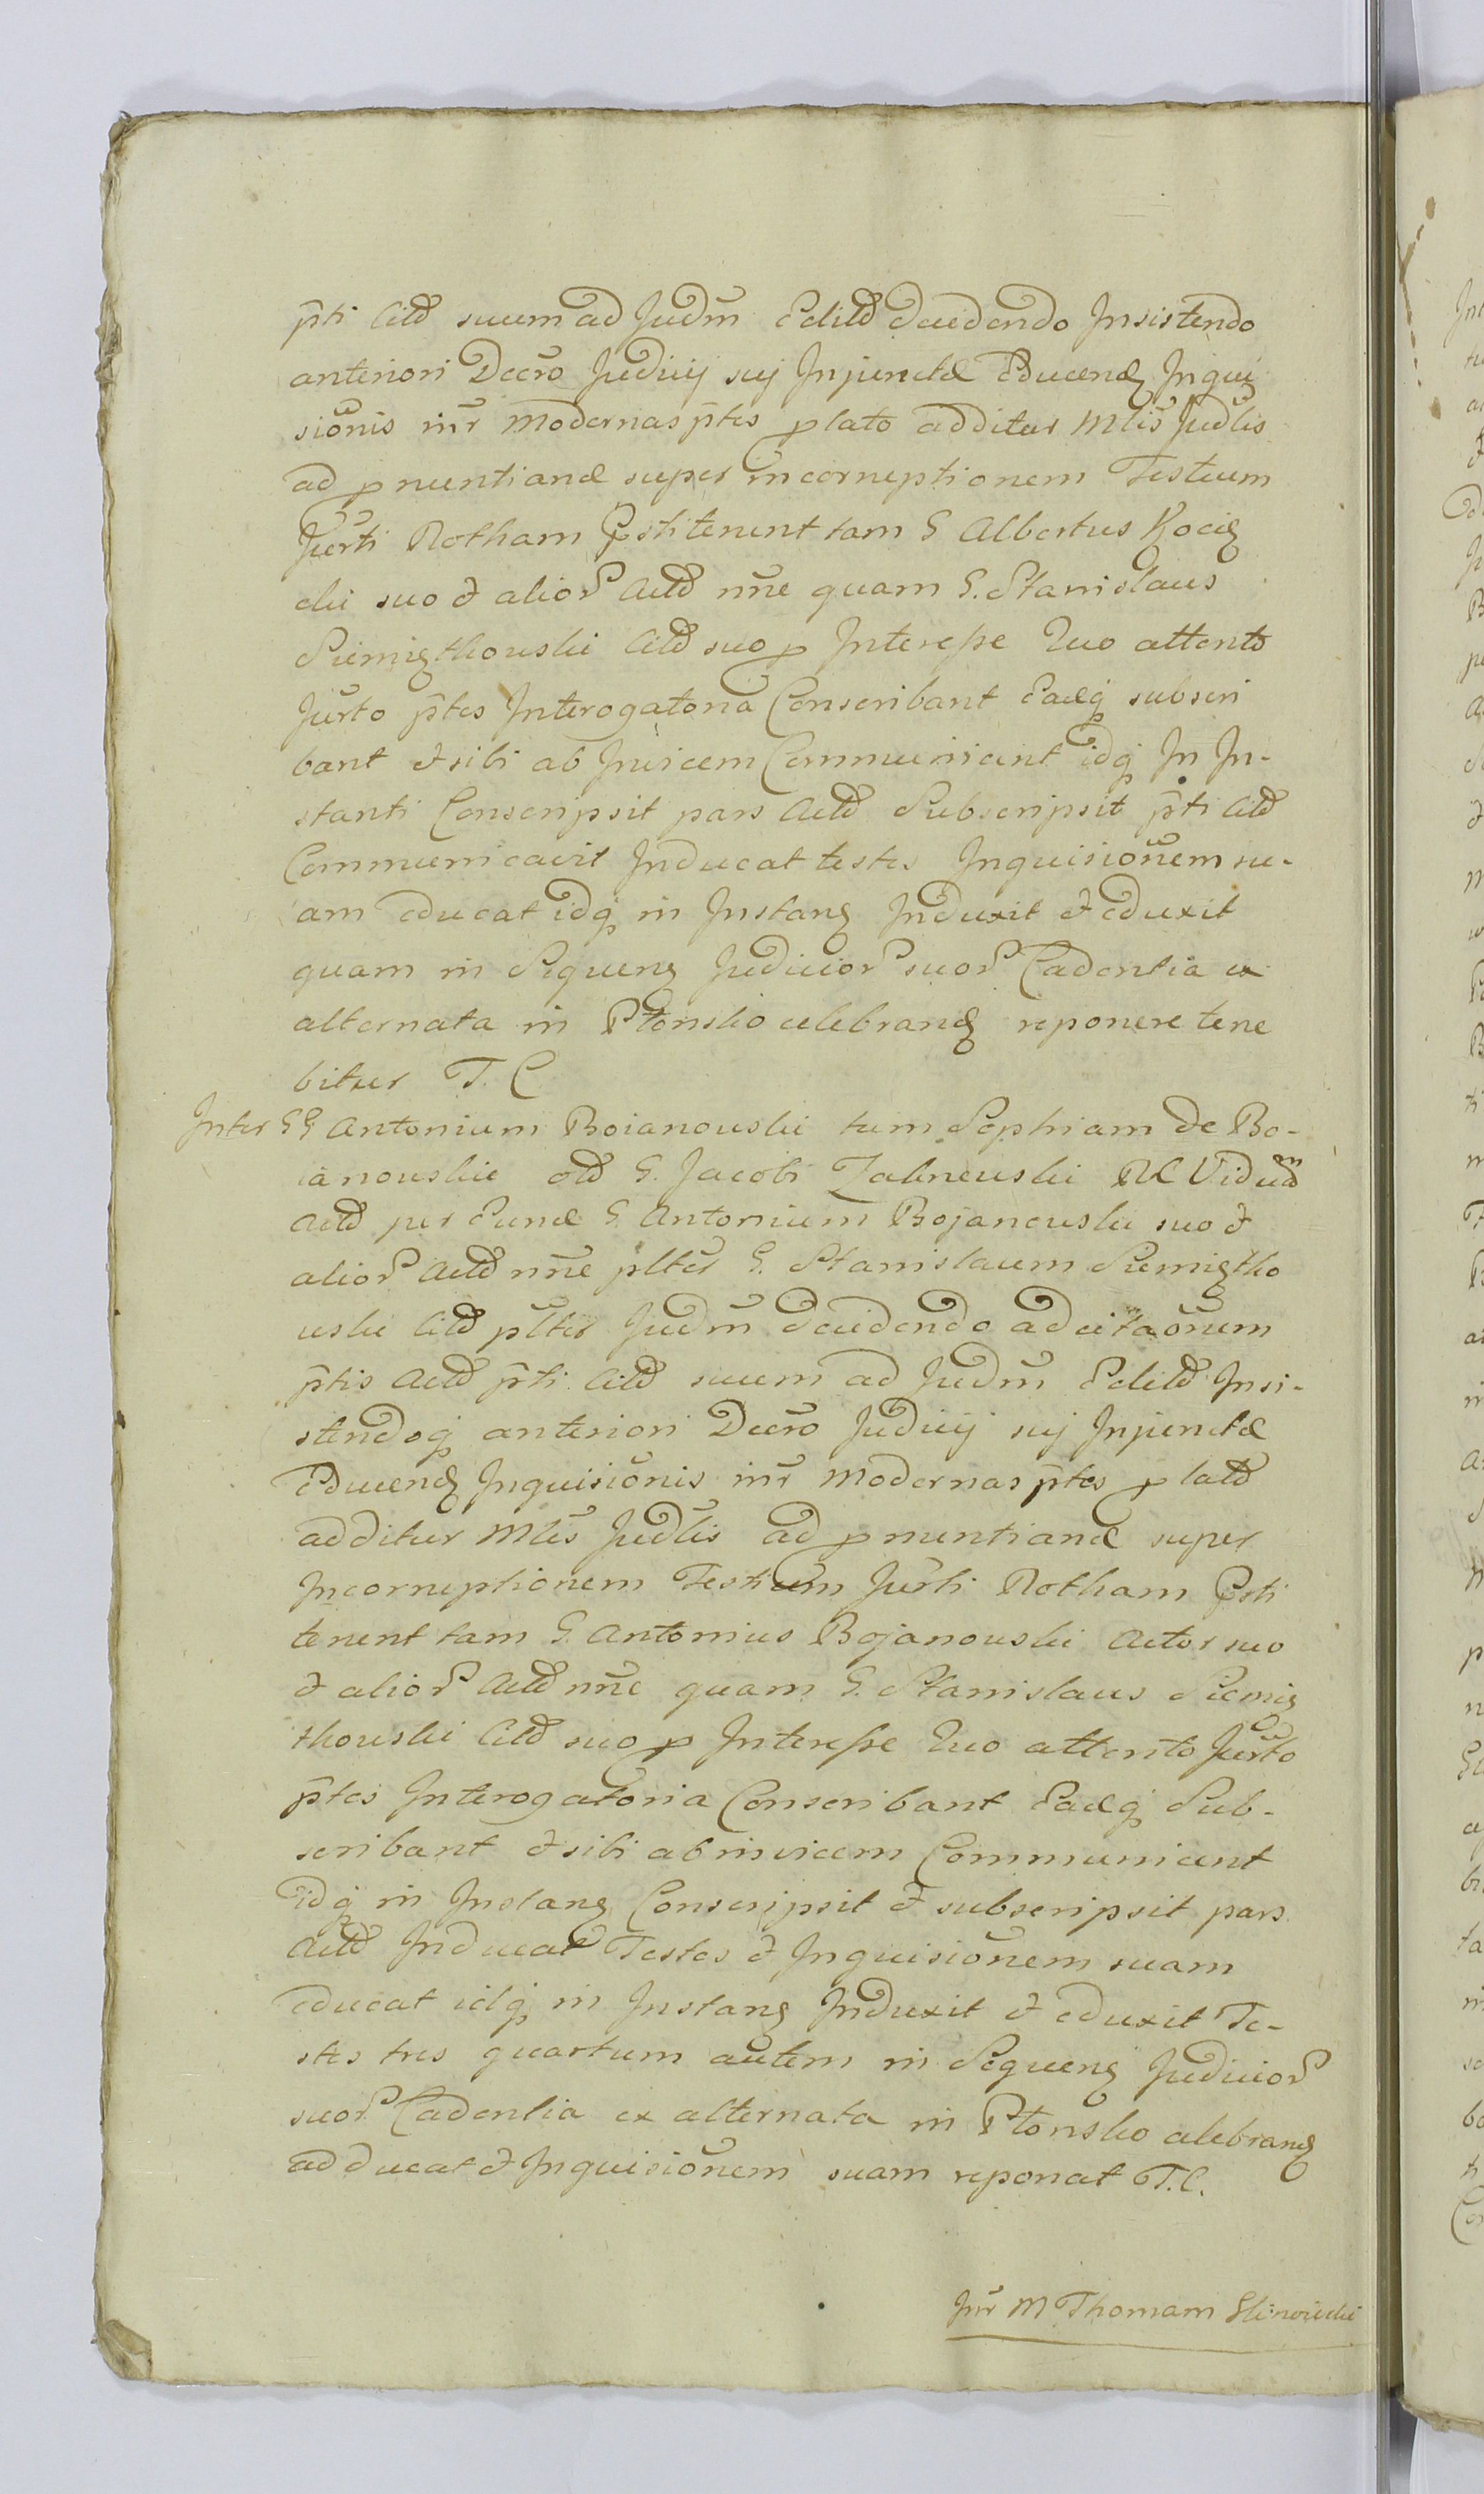 p̄ti Citd suum ad Judm̄ Editd decidendo Insistendo
anteriori Decr̄o Judicij sui Injunctae Educend Inqui
siōnis inr̄ modernas p̄tes plato additur Mlis̄ Judlis̄
ad pnuntiand super incorruptionem Testium
Jurti Rotham Pstitenent tam G Albertus Kocię
cki suo & alior Actd nn̄e quam G. Stanislaus
Siemiątkowski Citd suo p Interesse Quo attento
Jurto p̄tes Interogatoria Conscribant Eadq subscri
bant & sibi ab Invicem Communicent idq In In-
stanti Conscripsit pars Actd Subscripsit p̄ti Citd
Communicavit Inducat testes Inquisiōnem su-
am educat idq in Instang Induxit & eduxit
quam in Sequeng Judicior suor Cadentia ex
alternata in Płonsko celebrand reponere tene
bitur T. C
Inter GG Antonium Boianowski tum Sophiam de Bo-
ianowskie old G. Jacobi Zabnewski RU Viduam
Actd per Eund G. Antonium Bojanowski suo &
alior Actd nn̄e pltēr G. Stanislaum Siemiątko
wski Citd pltēr Judm̄ decidendo ad citaōnem
p̄tis Actd p̄ti Citd suum ad Judm̄ Editd Insi-
stendoq anteriori Decr̄o Judicij sui Injunctae
Educend Inquisiōnis inr̄ modernas p̄tes platd
additur Mlis̄ Judlis̄ ad pnuntiand super
Incorruptionem Testium Jurti Rotham Psti
tenent tam G. Antonius Bojanowski Actor suo
& alior Actd nn̄e quam G. Stanislaus Siemią
tkowski Citd suo p Interesse Quo attento Jurto
p̄tes Interogatoria Conscribant Eadq Sub-
scribant & sibi ab invicem Communicent
idq in Instang Conscripsit & subscripsit pars
Actd Inducat Testes & Inquisiōnem suam
educat idq in Instang Induxit & eduxit Te-
stes tres quartum autem in Sequeng Judicior
suor Cadentia ex alternata in Płonsko celebrand
adducat & Inquisiōnem suam reponat T.C.
Inr̄ M Thomam Gliniecki